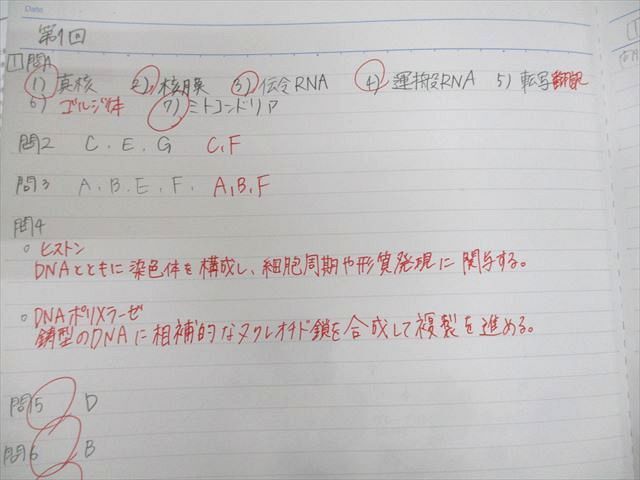 Date
第1回
1 問1
1) 真核 2) 核膜 3) 伝令RNA 4) 運搬RNA 5) 転写 翻訳
6) ゴルジ体 7) ミトコンドリア
問2 C, E, G C, F
問3 A, B, E, F, A, B, F
問4
○ ヒストン
DNAとともに染色体を構成し、細胞周期や形質発現に関与する。
○ DNAポリメラーゼ
鋳型のDNAに相補的なヌクレオチド鎖を合成して複製を進める。
問5 D
問6 B